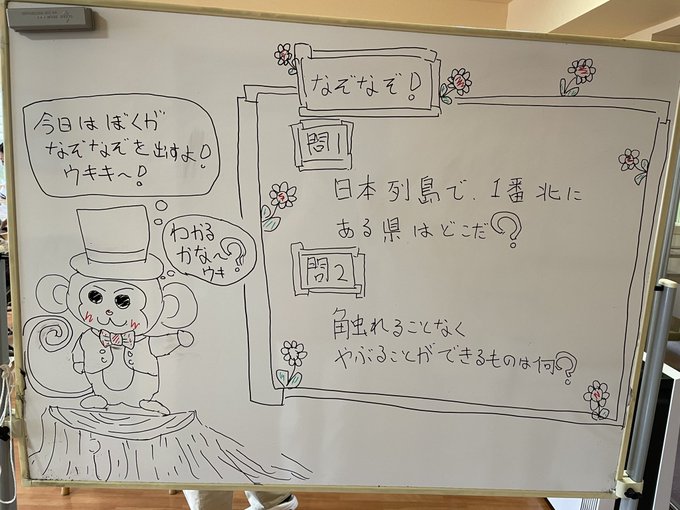 なぞなぞ!
今日はぼくが
なぞなぞを出すよ!
ウキキ〜!
わかる
かな〜?
ウキ
問1
日本列島で、1番北に
ある県はどこだ?
問2
触れることなく
やぶることができるものは何?